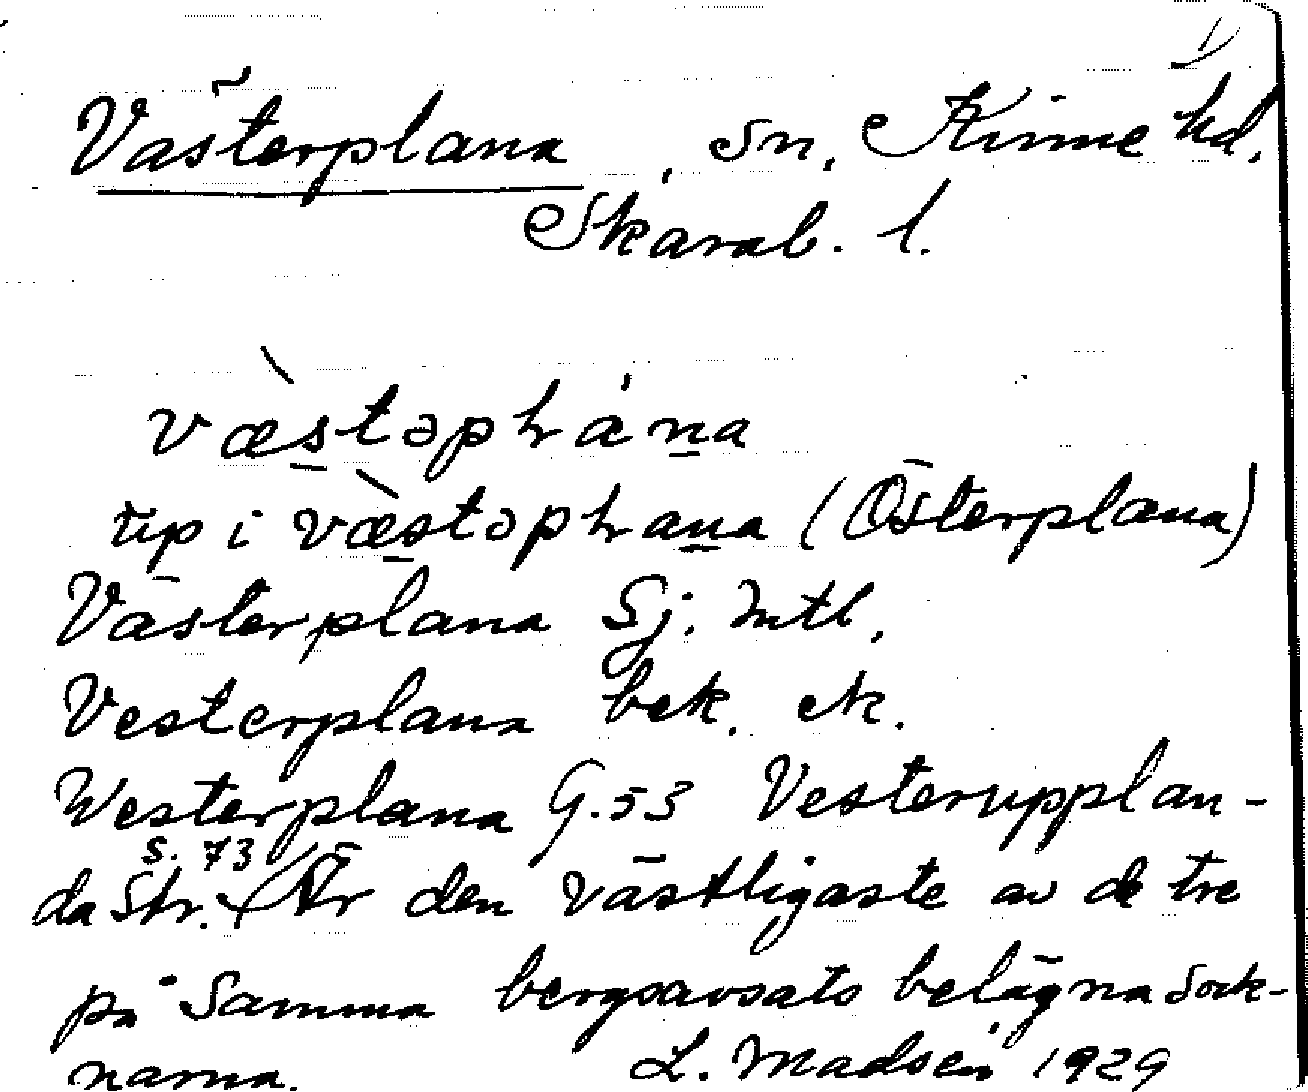 1)
Västerplana, sn, Kinne hd,
Skarab. l.
væstəphána
up i væstəphana (Österplana)
Västerplana Sj. Mtl.
Vesterplana bek. ek.
Westerplana G. 53 Vesterupplan-
da Str. s. 73 (Är den västligaste av de tre
på samma bergsavsats belägna sock-
narna. L. Madsén 1929